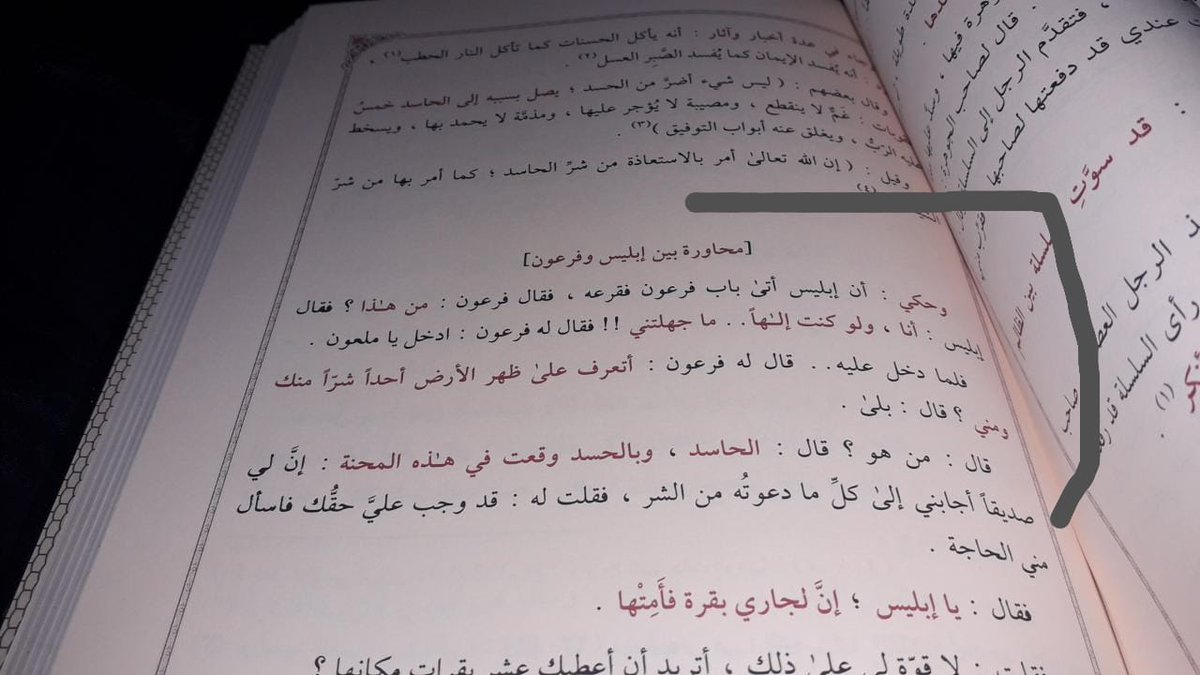 في عدة أخبار وآثار : أنه يأكل الحسنات كما تأكل النار الحطب(١) .
أنه يُفسد الإيمان كما يُفسد الصَّبِر العسل(٢) .
وقال بعضهم : ( ليس شيء أضرَّ من الحسد ؛ يصل بسببه إلى الحاسد خمسُ
غمٌّ لا ينقطع ، ومصيبة لا يُؤجر عليها ، ومذمَّة لا يحمد بها ، ويسخط
الربُّ ، ويغلق عنه أبواب التوفيق )(٣) .
وقيل : ( إن الله تعالىٰ أمر بالاستعاذة من شرِّ الحاسد ؛ كما أمر بها من شرّ
(٤)
[محاورة بين إبليس وفرعون]
وحكي : أن إبليس أتىٰ باب فرعون فقرعه ، فقال فرعون : من هـٰذا ؟ فقال
إبليس : أنا ، ولو كنت إلـٰهاً . . ما جهلتني !! فقال له فرعون : ادخل يا ملعون .
فلما دخل عليه . . قال له فرعون : أتعرف علىٰ ظهر الأرض أحداً شرّاً منك
ومني ؟ قال : بلىٰ .
قال : من هو ؟ قال : الحاسد ، وبالحسد وقعت في هـٰذه المحنة : إنَّ لي
صديقاً أجابني إلىٰ كلِّ ما دعوتُه من الشر ، فقلت له : قد وجب عليَّ حقُّك فاسأل
مني الحاجة .
فقال : يا إبليس ؛ إنَّ لجاري بقرة فأَمِتْها .
فقلت : لا قوّة لي علىٰ ذلك ، أتريد أن أعطيك عشر بقرات مكانها ؟
قال لصاحب
، فتقدَّم الرجل إلى السلسلة
عندي قد دفعتها لصاحبها
: قد سوَّتِ
سلسلة بين الظالم
الرجل
رأى السلسلة قد
صاحب
(١) .